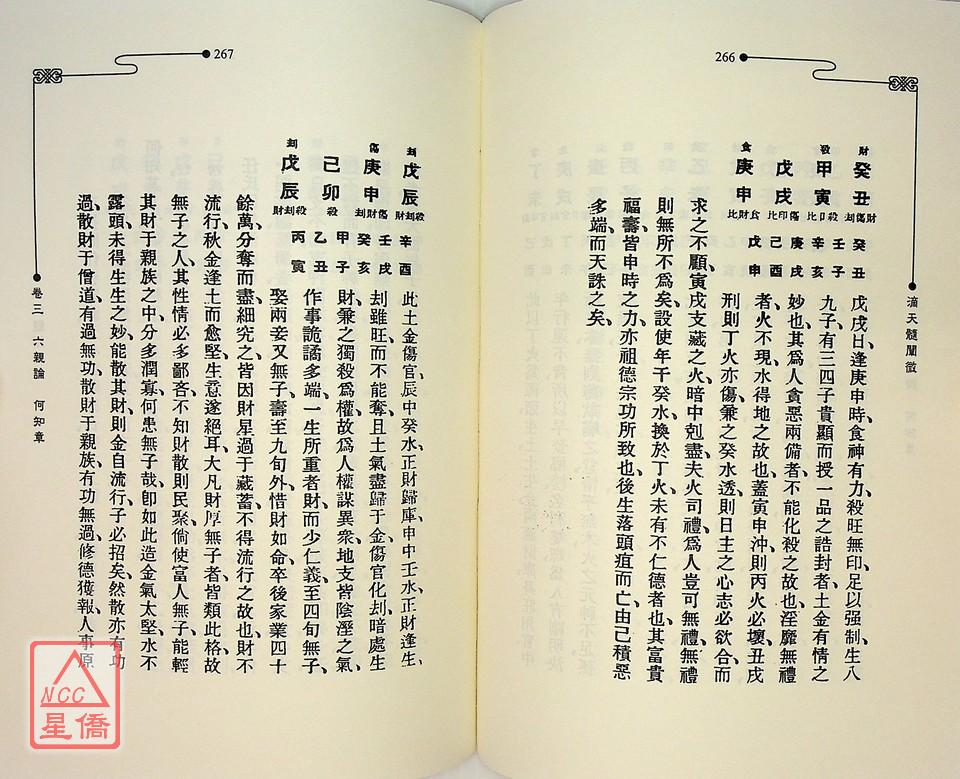 266
滴天髓闡微
財
癸丑
財傷刦
殺
甲寅
殺卩比
戊戌
傷印比
食
庚申
食財比
癸丑
壬子
辛亥
庚戌
己酉
戊申
戊戌日、逢庚申時、食神有力、殺旺無印、足以強制、生八
九子、有三四子貴顯、而授一品之誥封者、土金有情之
妙也、其為人貪惡兩備者、不能化殺之故也、淫靡無禮
者、火不現、水得地之故也、蓋寅申沖、則丙火必壞、丑戌
刑、則丁火亦傷、兼之癸水透、則日主之心志、必欲合而
求之、不顧寅戌支藏之火、暗中剋盡、夫火司禮、為人豈可無禮、無禮
則無所不為矣、設使年干癸水換於丁火、未有不仁德者也、其富貴
福壽、皆申時之力、亦祖德宗功所致也、後生落頭疽而亡、由己積惡
多端、而天誅之矣、
267
卷三 六親論 何知章
刦
戊辰
殺刦財
傷
庚申
傷財刦
己卯
殺
刦
戊辰
殺刦財
辛酉
壬戌
癸亥
甲子
乙丑
丙寅
此土金傷官、辰中癸水正財歸庫、申中壬水正財逢生、
刦雖旺而不能奪、且土氣盡歸于金、傷官化刦、暗處生
財、兼之獨殺為權、故為人權謀異衆、地支皆陰溼之氣、
作事詭譎多端、一生所重者財、而少仁義、至四旬無子、
娶兩妾又無子、壽至九旬外、惜財如命、卒後家業四十
餘萬、分奪而盡、細究之、皆因財星過于藏蓄、不得流行之故也、財不
流行、秋金逢土而愈堅、生意遂絕耳、大凡財厚無子者、皆類此格、故
無子之人、其性情必多鄙吝、不知財散則民聚、倘使富人無子、能輕
其財于親族之中、分多潤寡、何患無子哉、卽如此造、金氣太堅、水不
露頭、未得生生之妙、能散其財、則金自流行、子必招矣、然散亦有功
過、散財于僧道、有過無功、散財于親族、有功無過、修德獲報、人事原
NCC
星僑